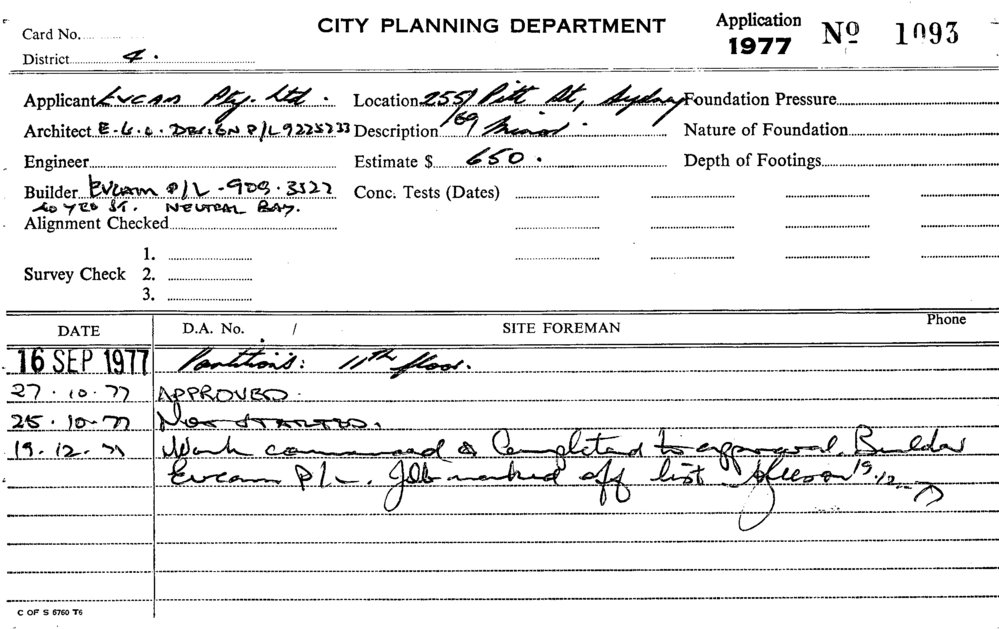 Card No.
CITY PLANNING DEPARTMENT
Application 1977 No 1093
District 4.
Applicant Evcam Pty. Ltd. Location 255/ Pitt St, Sydney Foundation Pressure
Architect E.G.O. DESIGN P/L 9225233 Description /69 Minor. Nature of Foundation
Engineer Estimate $ 650. Depth of Footings
Builder EVCAM P/L - 909.3522 Conc. Tests (Dates)
40 YEO ST. NEUTRAL BAY.
Alignment Checked
1.
Survey Check 2.
3.
DATE D.A. No. / SITE FOREMAN Phone
16 SEP 1977 Partitions: 11th floor.
27.10.77 APPROVED.
25.10.77 NOT STARTED.
19.12.77 Work commenced & Completed to approval. Builder
Evcam P/L. Job marked off list 19.12.77
C OF S 6760 T6